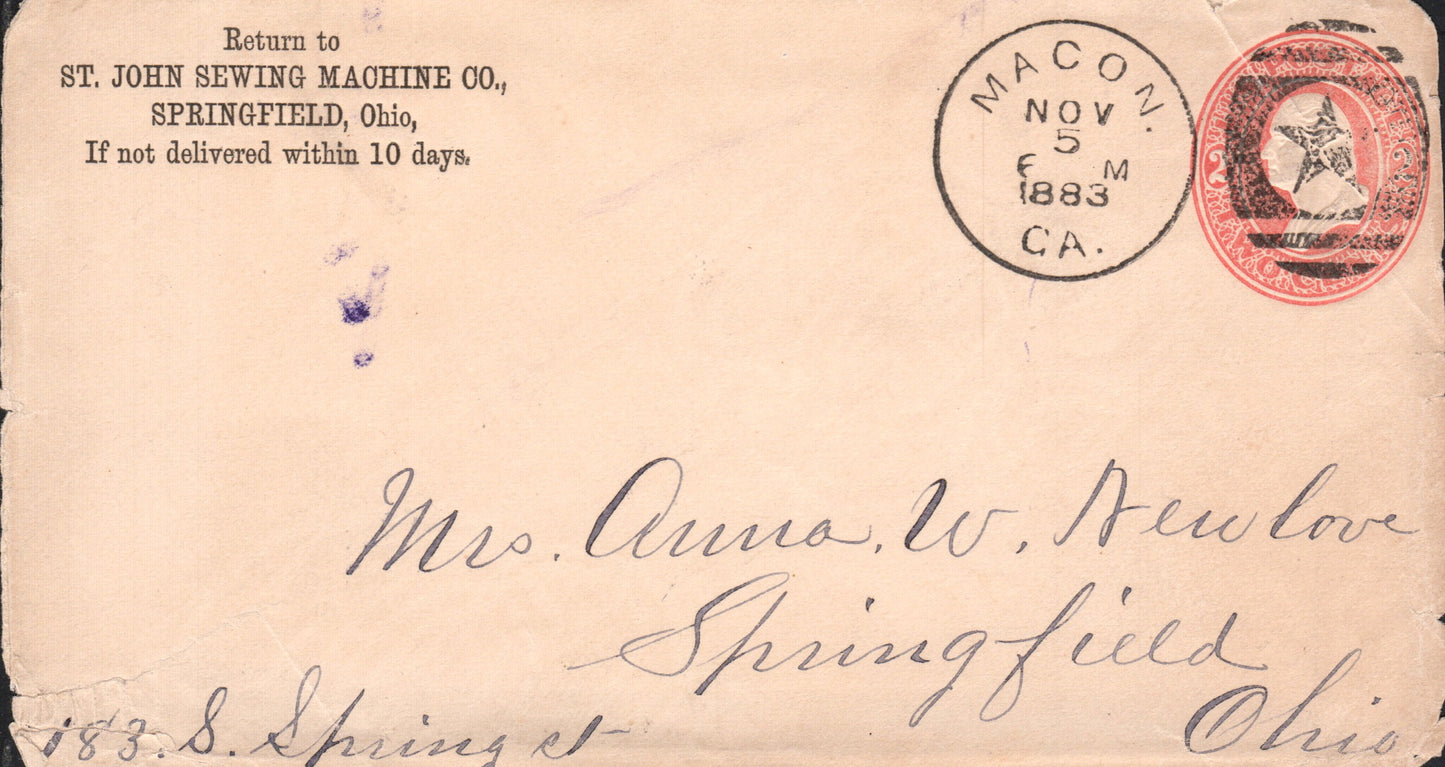 Return to
ST. JOHN SEWING MACHINE CO.,
SPRINGFIELD, Ohio,
If not delivered within 10 days.
MACON.
NOV
5
M
1883
GA.
2 2
TWO
Mrs. Anna. W. Newlove
Springfield
Ohio.
183. S. Spring st